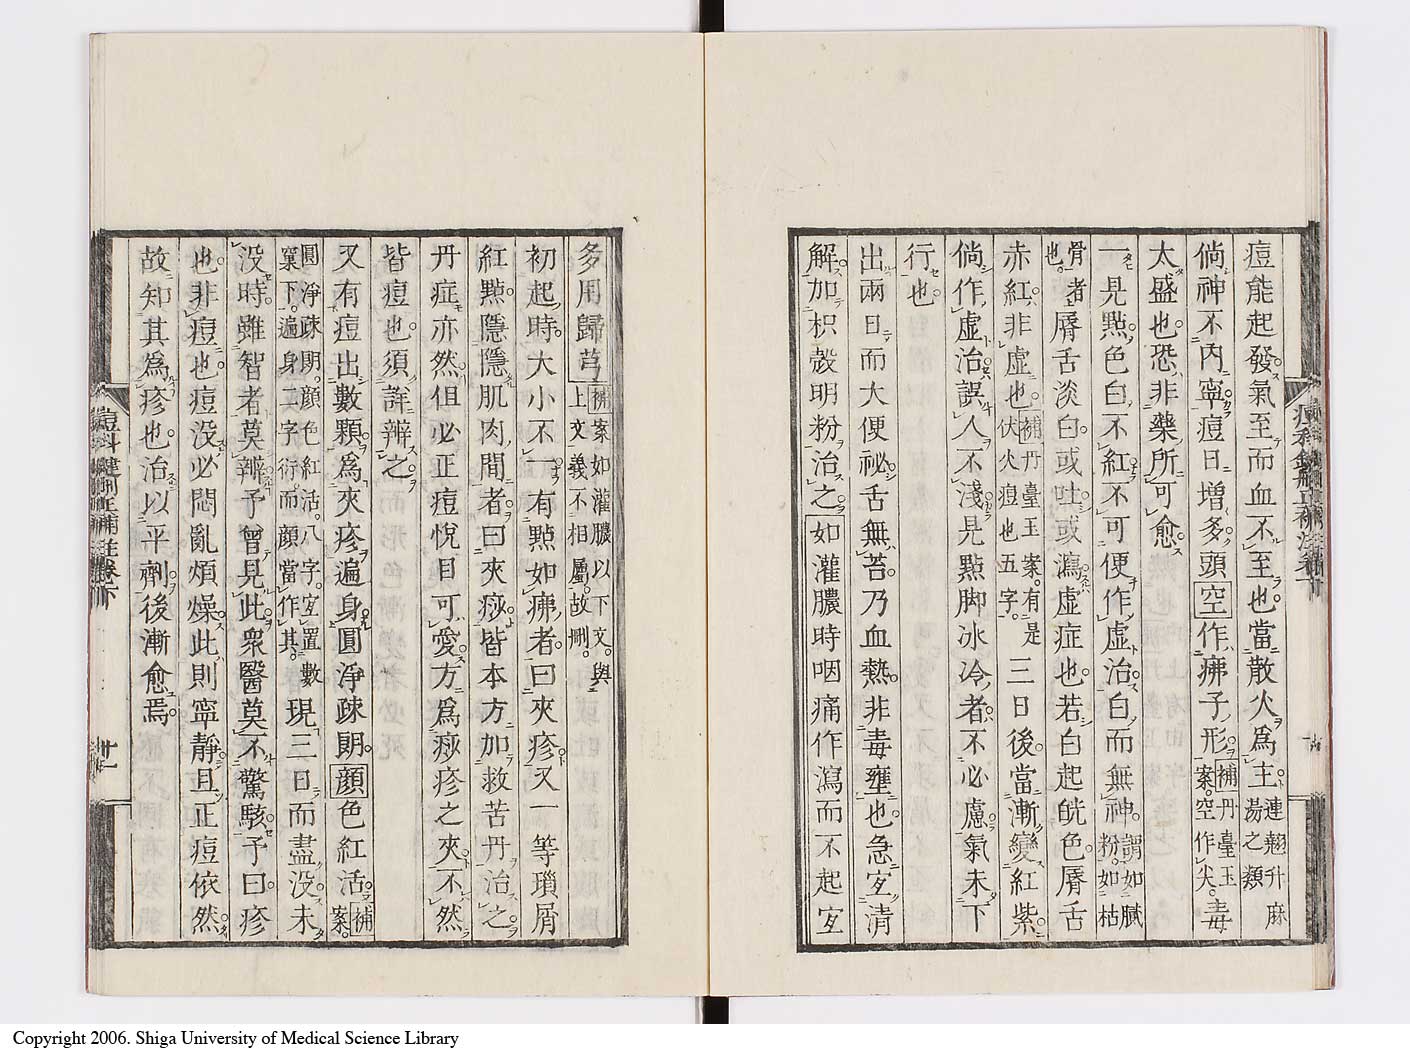 痘能起發氣至而血不至也當散火爲主連翹升麻湯之類
倘神不內寧痘日增多頭空作疿子形補案丹臺玉空作尖毒
太盛也恐非藥所可愈
一見㸃色白不紅不可便作虛治白而無神謂如膩粉如枯
骨者也脣舌淡白或吐或瀉虛症也若白起皝色脣舌
赤紅非虛也補丹臺玉案有是伏火痘也五字三日後當漸變紅紫
倘作虛治誤人不淺見㸃脚冰冷者不必慮氣未下
行也
出兩日而大便祕舌無苔乃血熱非毒壅也急宜清
解加枳殼明粉治之如灌膿時咽痛作瀉而不起宜
多用歸芎補案如灌膿以下文與上文義不相屬故刪
初起時大小不一有㸃如疿者曰夾疹又一等瑣屑
紅㸃隱隱肌肉間者曰夾痧皆本方加救苦丹治之
丹症亦然但必正痘悅目可愛方爲痧疹之夾不然
皆痘也須詳辨之
又有痘出數顆爲夾疹遍身圓淨疎朗顏色紅活補案
圓淨疎朗顏色紅活八字宜置數窠下遍身二字衍而顏當作其現三日而盡没未
没時雖智者莫辨予曾見此衆醫莫不驚駭予曰疹
也非痘也痘没必悶亂煩燥此則寧靜且正痘依然
故知其爲疹也治以平劑後漸愈焉
痘科鍵刪正補註卷下
廿一
Copyright 2006. Shiga University of Medical Science Library